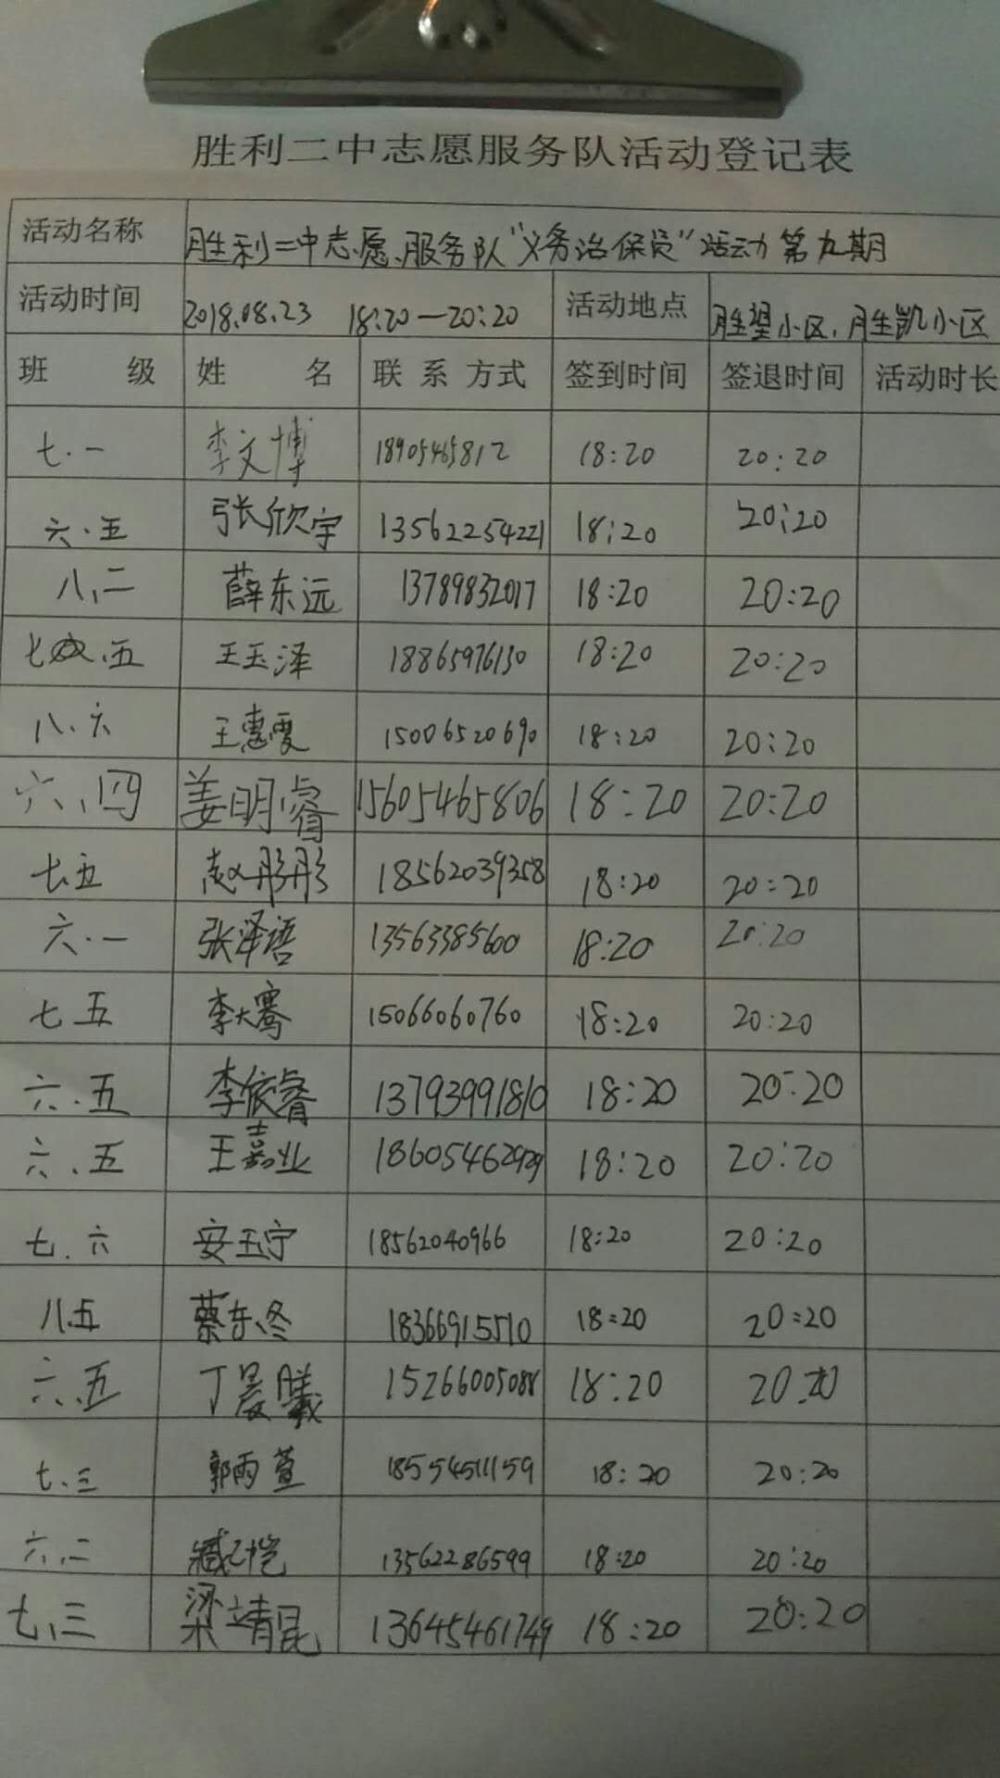 胜利二中志愿服务队活动登记表
活动名称 胜利二中志愿服务队“义务治保员”活动第九期
活动时间 2018.08.23 18:20—20:20 活动地点 胜望小区、胜凯小区
班 级 姓 名 联 系 方式 签到时间 签退时间 活动时长
七.一 李文博 18:20 20:20
六.五 张欣宇 13562254221 18:20 20:20
八、二 薛东远 13789832017 18:20 20:20
七、五 王玉泽 18865976130 18:20 20:20
八.六 王惠雯 15006520690 18:20 20:20
六、四 姜明睿 15605465806 18:20 20:20
七.五 赵彤彤 18562039358 18:20 20:20
六.一 张泽语 13563385600 18:20 20:20
七 五 李大骞 15066060760 18:20 20:20
六.五 李依睿 13793991810 18:20 20:20
六、五 王嘉业 18605462929 18:20 20:20
七.六 安玉宁 18562040966 18:20 20:20
八.五 蔡东冬 18366915510 18:20 20:20
六、五 丁晨曦 15266005088 18:20 20:20
七、三 郭雨萱 18554511159 18:20 20:20
六、二 臧恺 13562286599 18:20 20:20
七、三 梁靖昆 13645461749 18:20 20:20